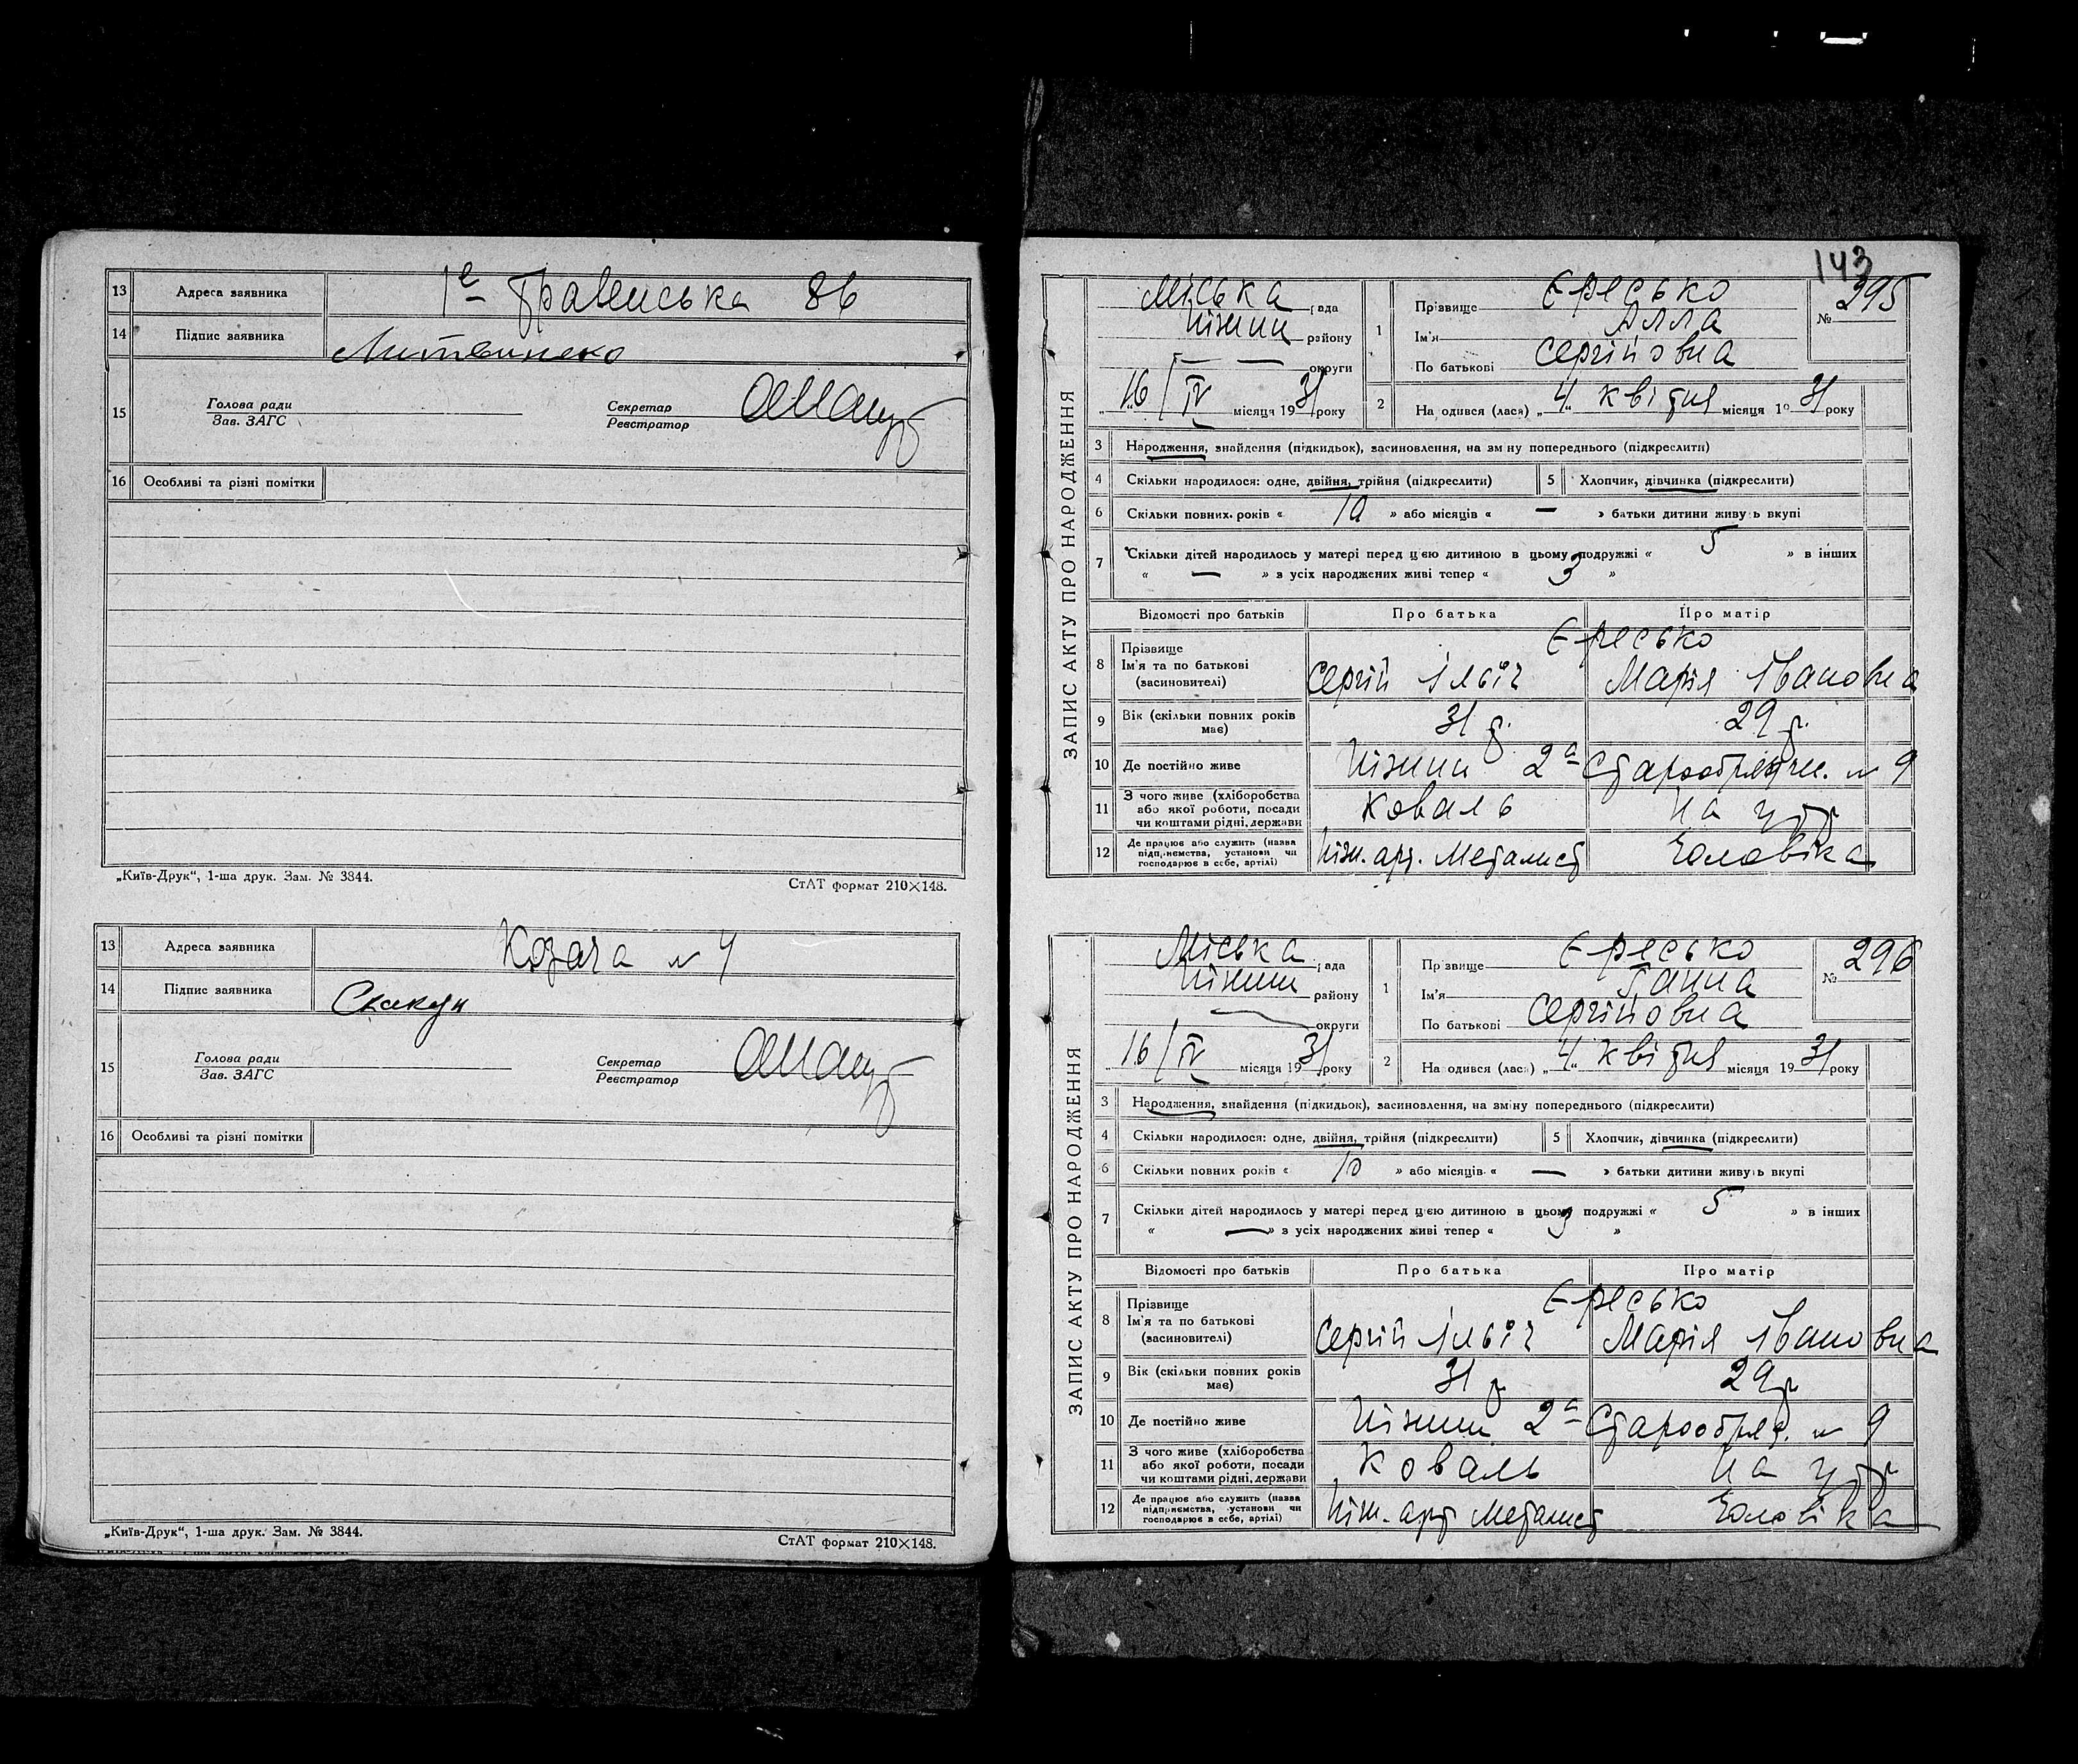 13 Адреса заявника 1а Правенська 86
14 Підпис заявника Литвиненко
15 Голова ради Зав. ЗАГС Секретар Реєстратор
16 Особливі та різні помітки
„Київ-Друк“, 1-ша друк. Зам. № 3844. СтАТ формат 210×148.
13 Адреса заявника Козача № 4
14 Підпис заявника Скакун
15 Голова ради Зав. ЗАГС Секретар Реєстратор
16 Особливі та різні помітки
„Київ-Друк“, 1-ша друк. Зам. № 3844. СтАТ формат 210×148.
143
ЗАПИС АКТУ ПРО НАРОДЖЕННЯ
Міська рада
Ніжин району
— округи
„16/IV місяця 1931 року
1 Прізвище Єресько
Ім'я Алла
По батькові Сергіївна
№ 295
2 Народився (лася) „4“ квітня місяця 1931 року
3 Народження, знайдення (підкидьок), засиновлення, на зміну попереднього (підкреслити)
4 Скільки народилося: одне, двійня, трійня (підкреслити) 5 Хлопчик, дівчинка (підкреслити)
6 Скільки повних років « 10 » або місяців « — » батьки дитини живуть вкупі
7 Скільки дітей народилось у матері перед цією дитиною в цьому подружжі « 5 » в інших
« — » з усіх народжених живі тепер « 3 »
Відомості про батьків Про батька Про матір
8 Прізвище Ім'я та по батькові (засновителі) Єресько
Сергій Ільїч Марія Івановна
9 Вік (скільки повних років має) 31 р. 29 р.
10 Де постійно живе Ніжин 2а Старообрядчес. № 9
11 З чого живе (хліборобства або якої роботи, посади чи коштами рідні, держави Коваль На утр
12 Де працює або служить (назва підприємства, установи чи господарює в себе, артілі) Ніж. арт. Металист Чоловіка
ЗАПИС АКТУ ПРО НАРОДЖЕННЯ
Міська рада
Ніжин району
— округи
„16/IV місяця 1931 року
1 Прізвище Єресько
Ім'я Ганна
По батькові Сергійовна
№ 296
2 Народився (лася) „4“ квітня місяця 1931 року
3 Народження, знайдення (підкидьок), засиновлення, на зміну попереднього (підкреслити)
4 Скільки народилося: одне, двійня, трійня (підкреслити) 5 Хлопчик, дівчинка (підкреслити)
6 Скільки повних років « 10 » або місяців « — » батьки дитини живуть вкупі
7 Скільки дітей народилось у матері перед цією дитиною в цьому подружжі « 5 » в інших
« — » з усіх народжених живі тепер « 3 »
Відомості про батьків Про батька Про матір
8 Прізвище Ім'я та по батькові (засиновителі) Єресько
Сергій Ільїч Марія Івановна
9 Вік (скільки повних років має) 31 р 29 р
10 Де постійно живе Ніжин 2а Старообряд. № 9
11 З чого живе (хліборобства або якої роботи, посади чи коштами рідні, держави Коваль На утр
12 Де працює або служить (назва підприємства, установи чи господарює в себе, артілі) Ніж. арт Металист Чоловіка